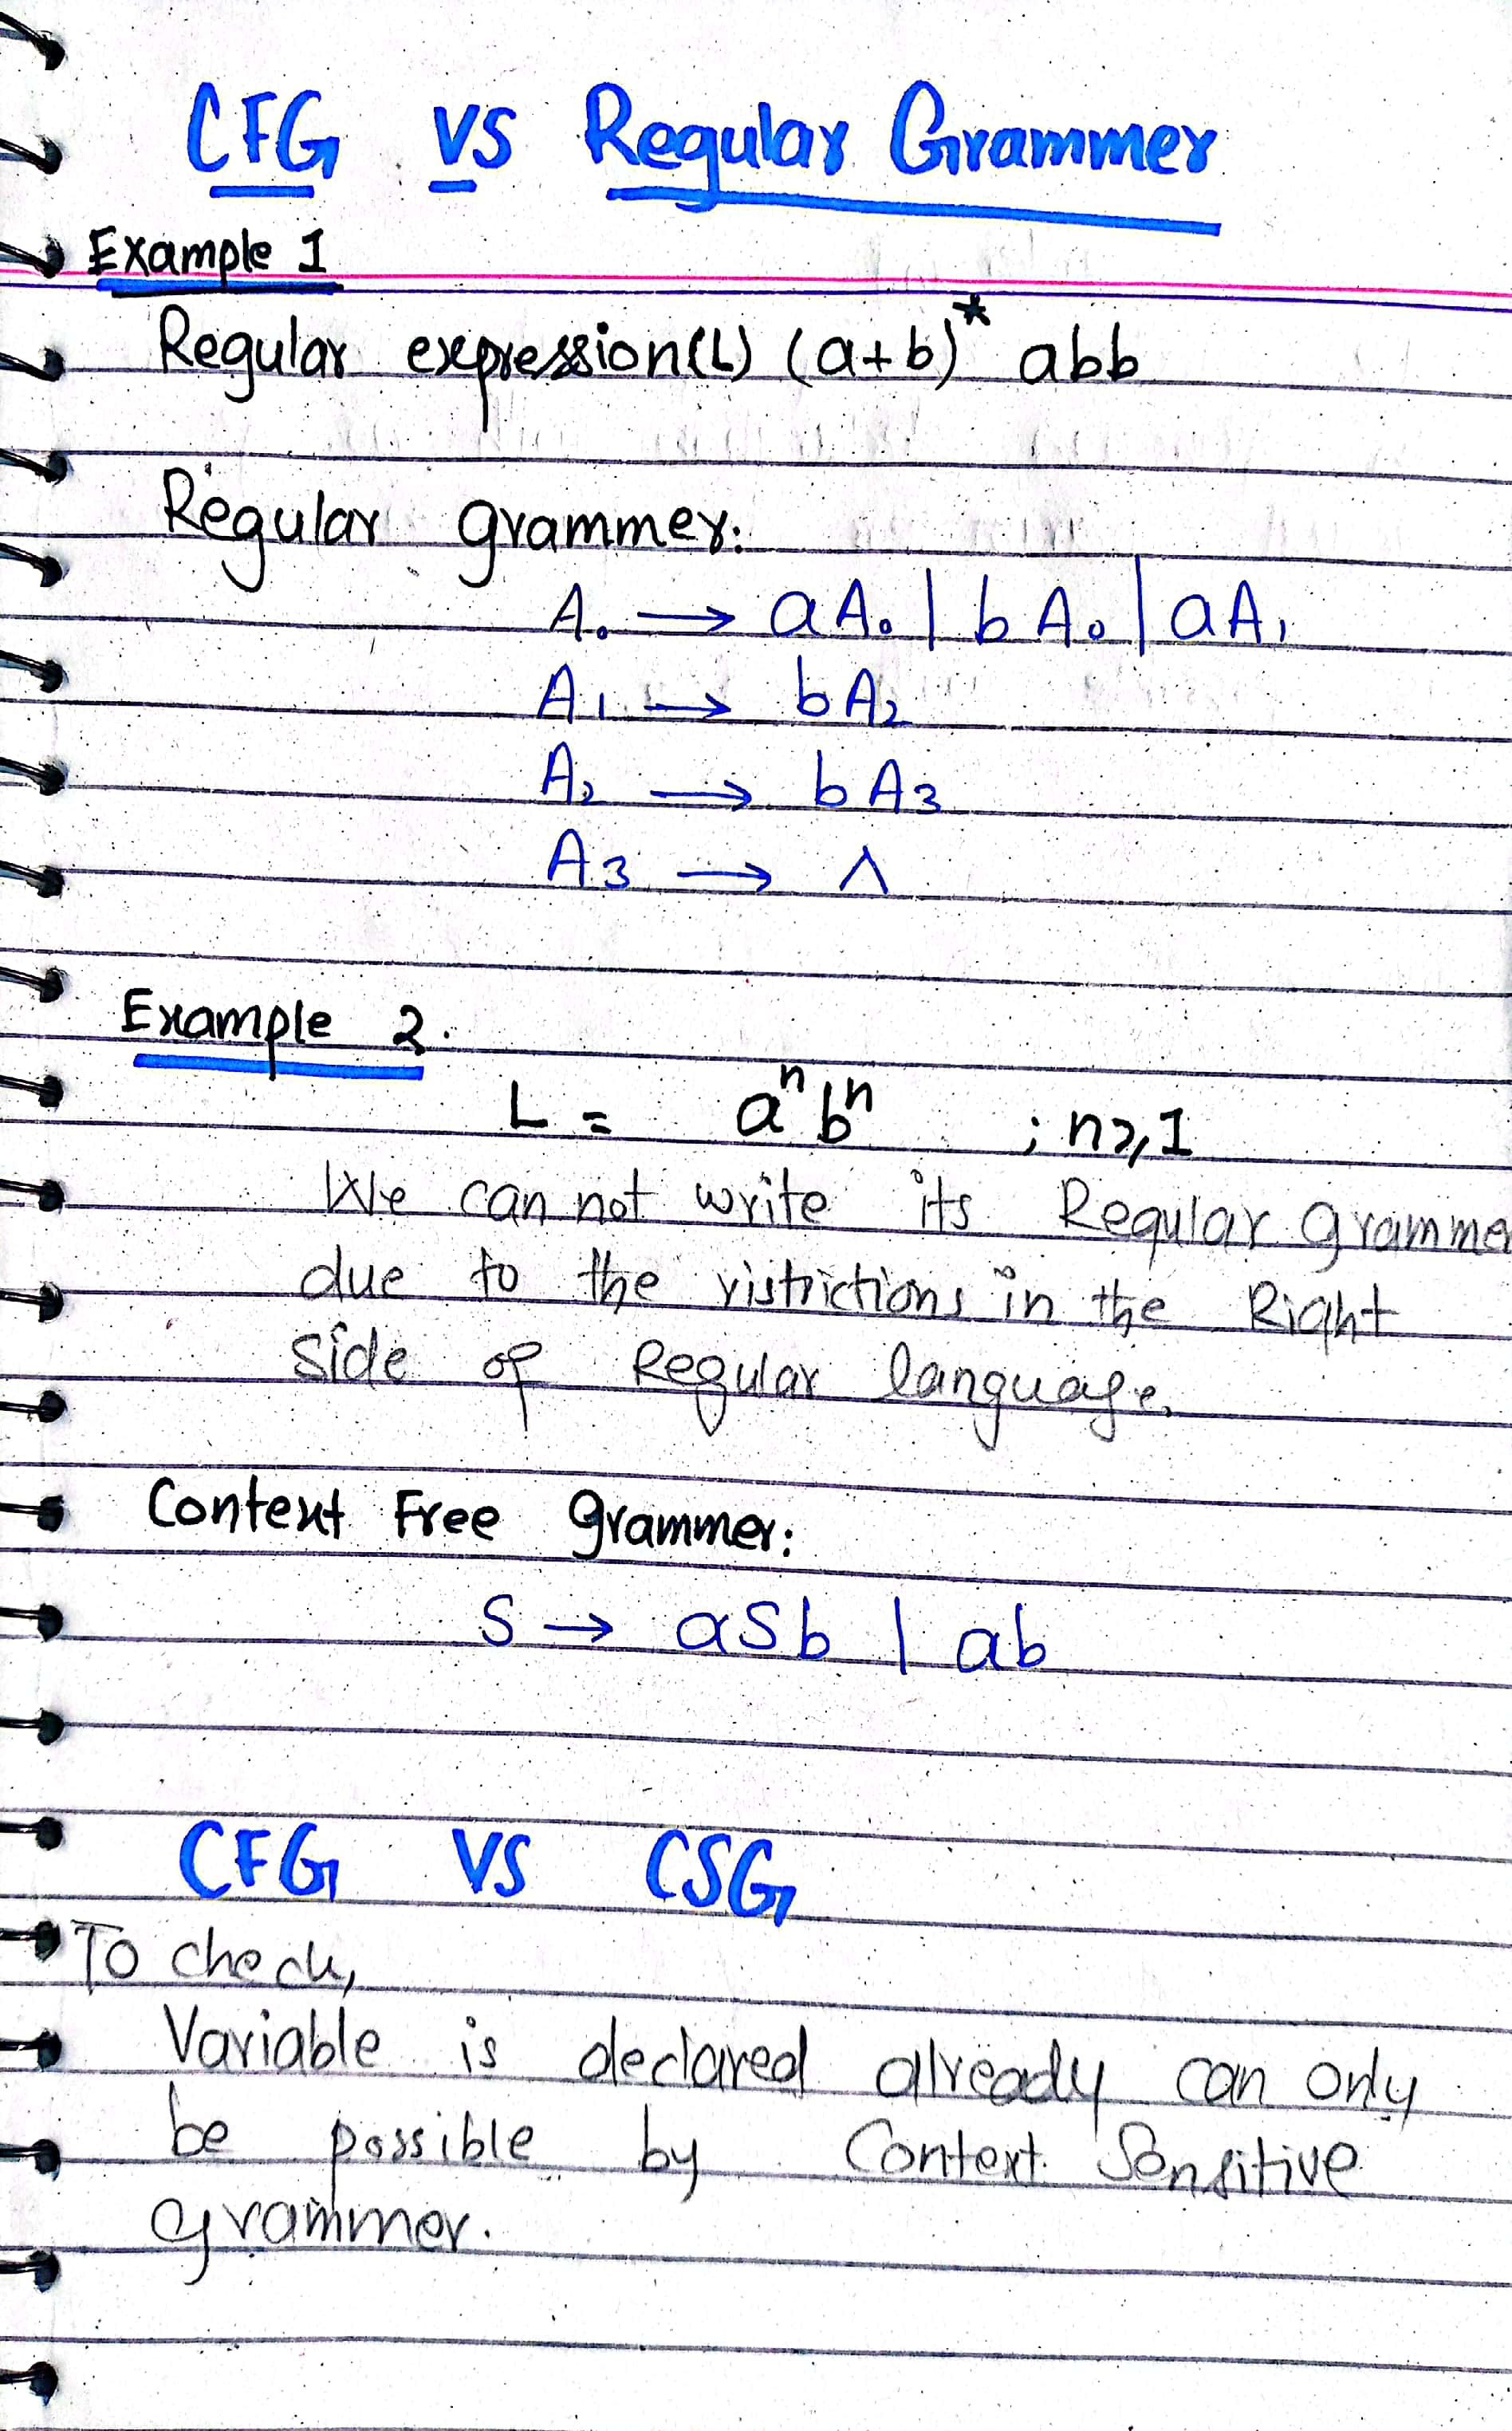 CFG vs Regular Grammer
Example 1
Regular expression(L) (a+b)* abb
Regular grammer:
A₀ → aA₀ | bA₀ | aA₁
A₁ → bA₂
A₂ → bA₃
A₃ → ᴧ
Example 2.
L = aⁿbⁿ ; n≥1
We can not write its Regular gramme
due to the ristrictions in the Right
side of Regular language.
Context Free grammer:
S → aSb | ab
CFG VS CSG
To check,
Variable is declared already can only
be possible by Context Sensitive
grammer.